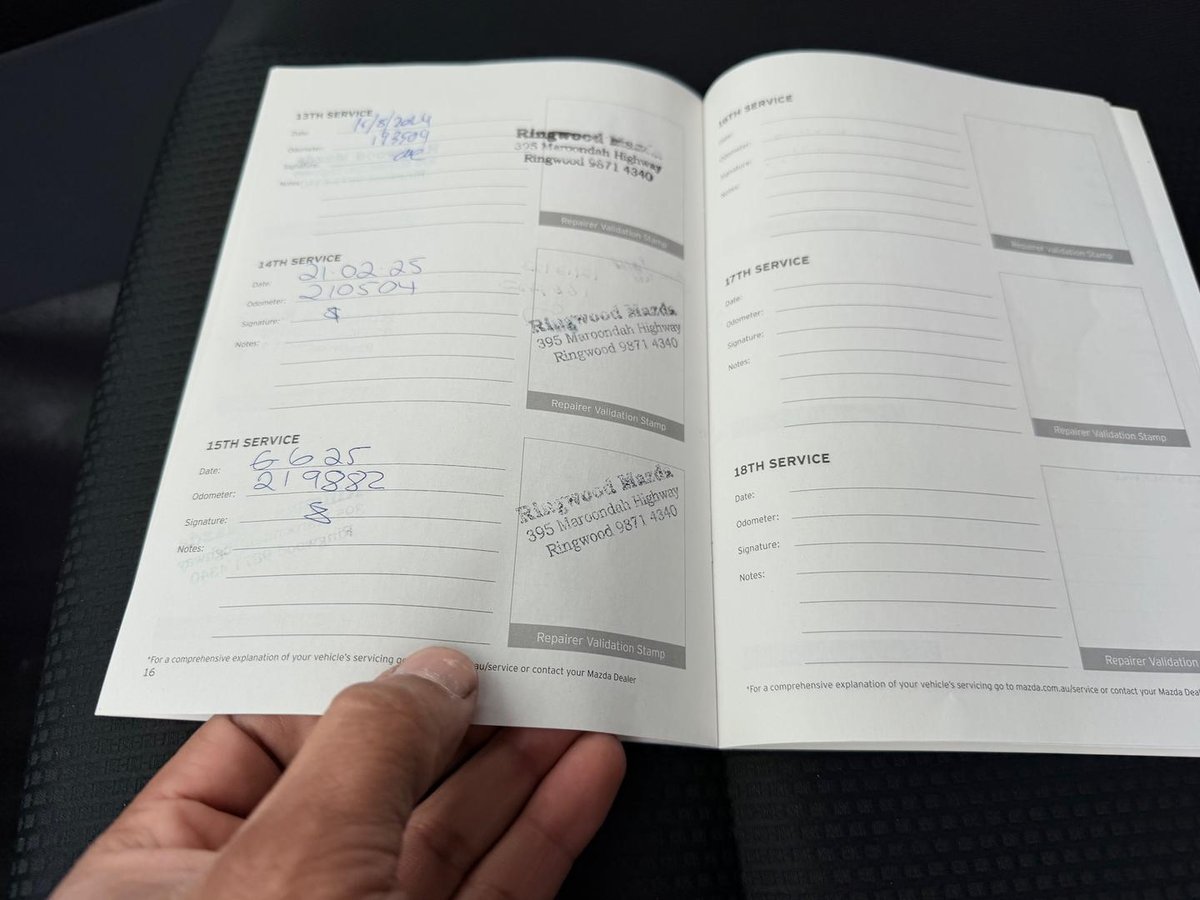 13TH SERVICE
Date: 16/8/2024
Odometer: 193509
Signature:
Notes:
Ringwood Mazda
395 Maroondah Highway
Ringwood 9871 4340
Repairer Validation Stamp
14TH SERVICE
Date: 21.02.25
Odometer: 210504
Signature:
Notes:
Ringwood Mazda
395 Maroondah Highway
Ringwood 9871 4340
Repairer Validation Stamp
15TH SERVICE
Date: 6 6 25
Odometer: 219882
Signature:
Notes:
Ringwood Mazda
395 Maroondah Highway
Ringwood 9871 4340
Repairer Validation Stamp
*For a comprehensive explanation of your vehicle's servicing go au/service or contact your Mazda Dealer
16
16TH SERVICE
Date:
Odometer:
Signature:
Notes:
Repairer Validation Stamp
17TH SERVICE
Date:
Odometer:
Signature:
Notes:
Repairer Validation Stamp
18TH SERVICE
Date:
Odometer:
Signature:
Notes:
Repairer Validation
*For a comprehensive explanation of your vehicle's servicing go to mazda.com.au/service or contact your Mazda Deal